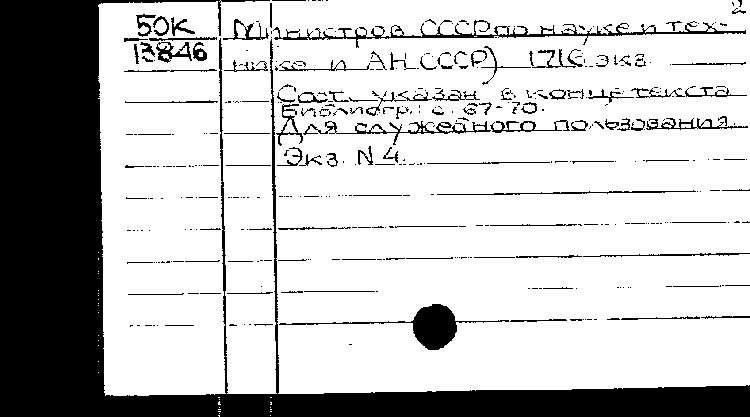 2
50К Министров СССР по науке и тех-
13846 нике и АН СССР) 1716 экз.
Сост. указан в конце текста
Библиогр.: с. 67-70.
Для служебного пользования.
Экз. N 4.